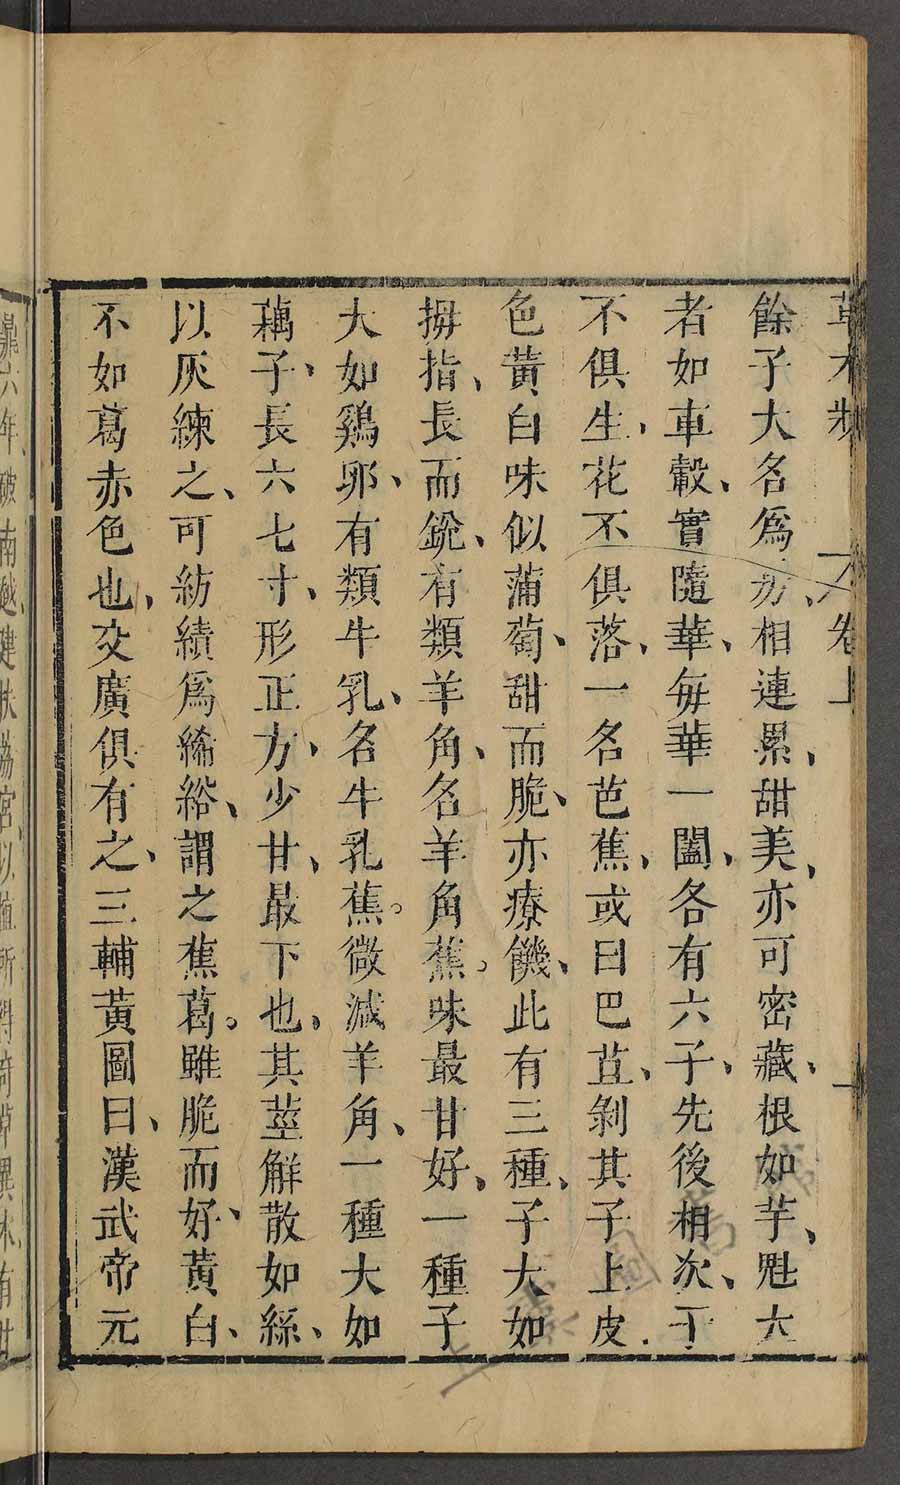 草木狀 卷上 一
餘子大名爲房、相連累、甜美、亦可密藏、根如芋、魁大
者如車轂、實隨華、每華一闔、各有六子、先後相次、子
不俱生、花不俱落、一名芭蕉、或曰巴苴、剝其子上皮
色黃白味似蒲萄、甜而脆、亦療饑、此有三種、子大如
拇指、長而銳、有類羊角、名羊角蕉。味最甘好、一種子
大如鷄卵、有類牛乳、名牛乳蕉。微減羊角、一種大如
藕子、長六七寸、形正方、少甘、最下也、其莖解散如絲、
以灰練之、可紡績爲絺綌、謂之蕉葛。雖脆而好、黃白、
不如葛赤色也、交廣俱有之、三輔黃圖曰、漢武帝元
鼎六年、破南越、建扶荔宮、以植所得奇草異木、有甘